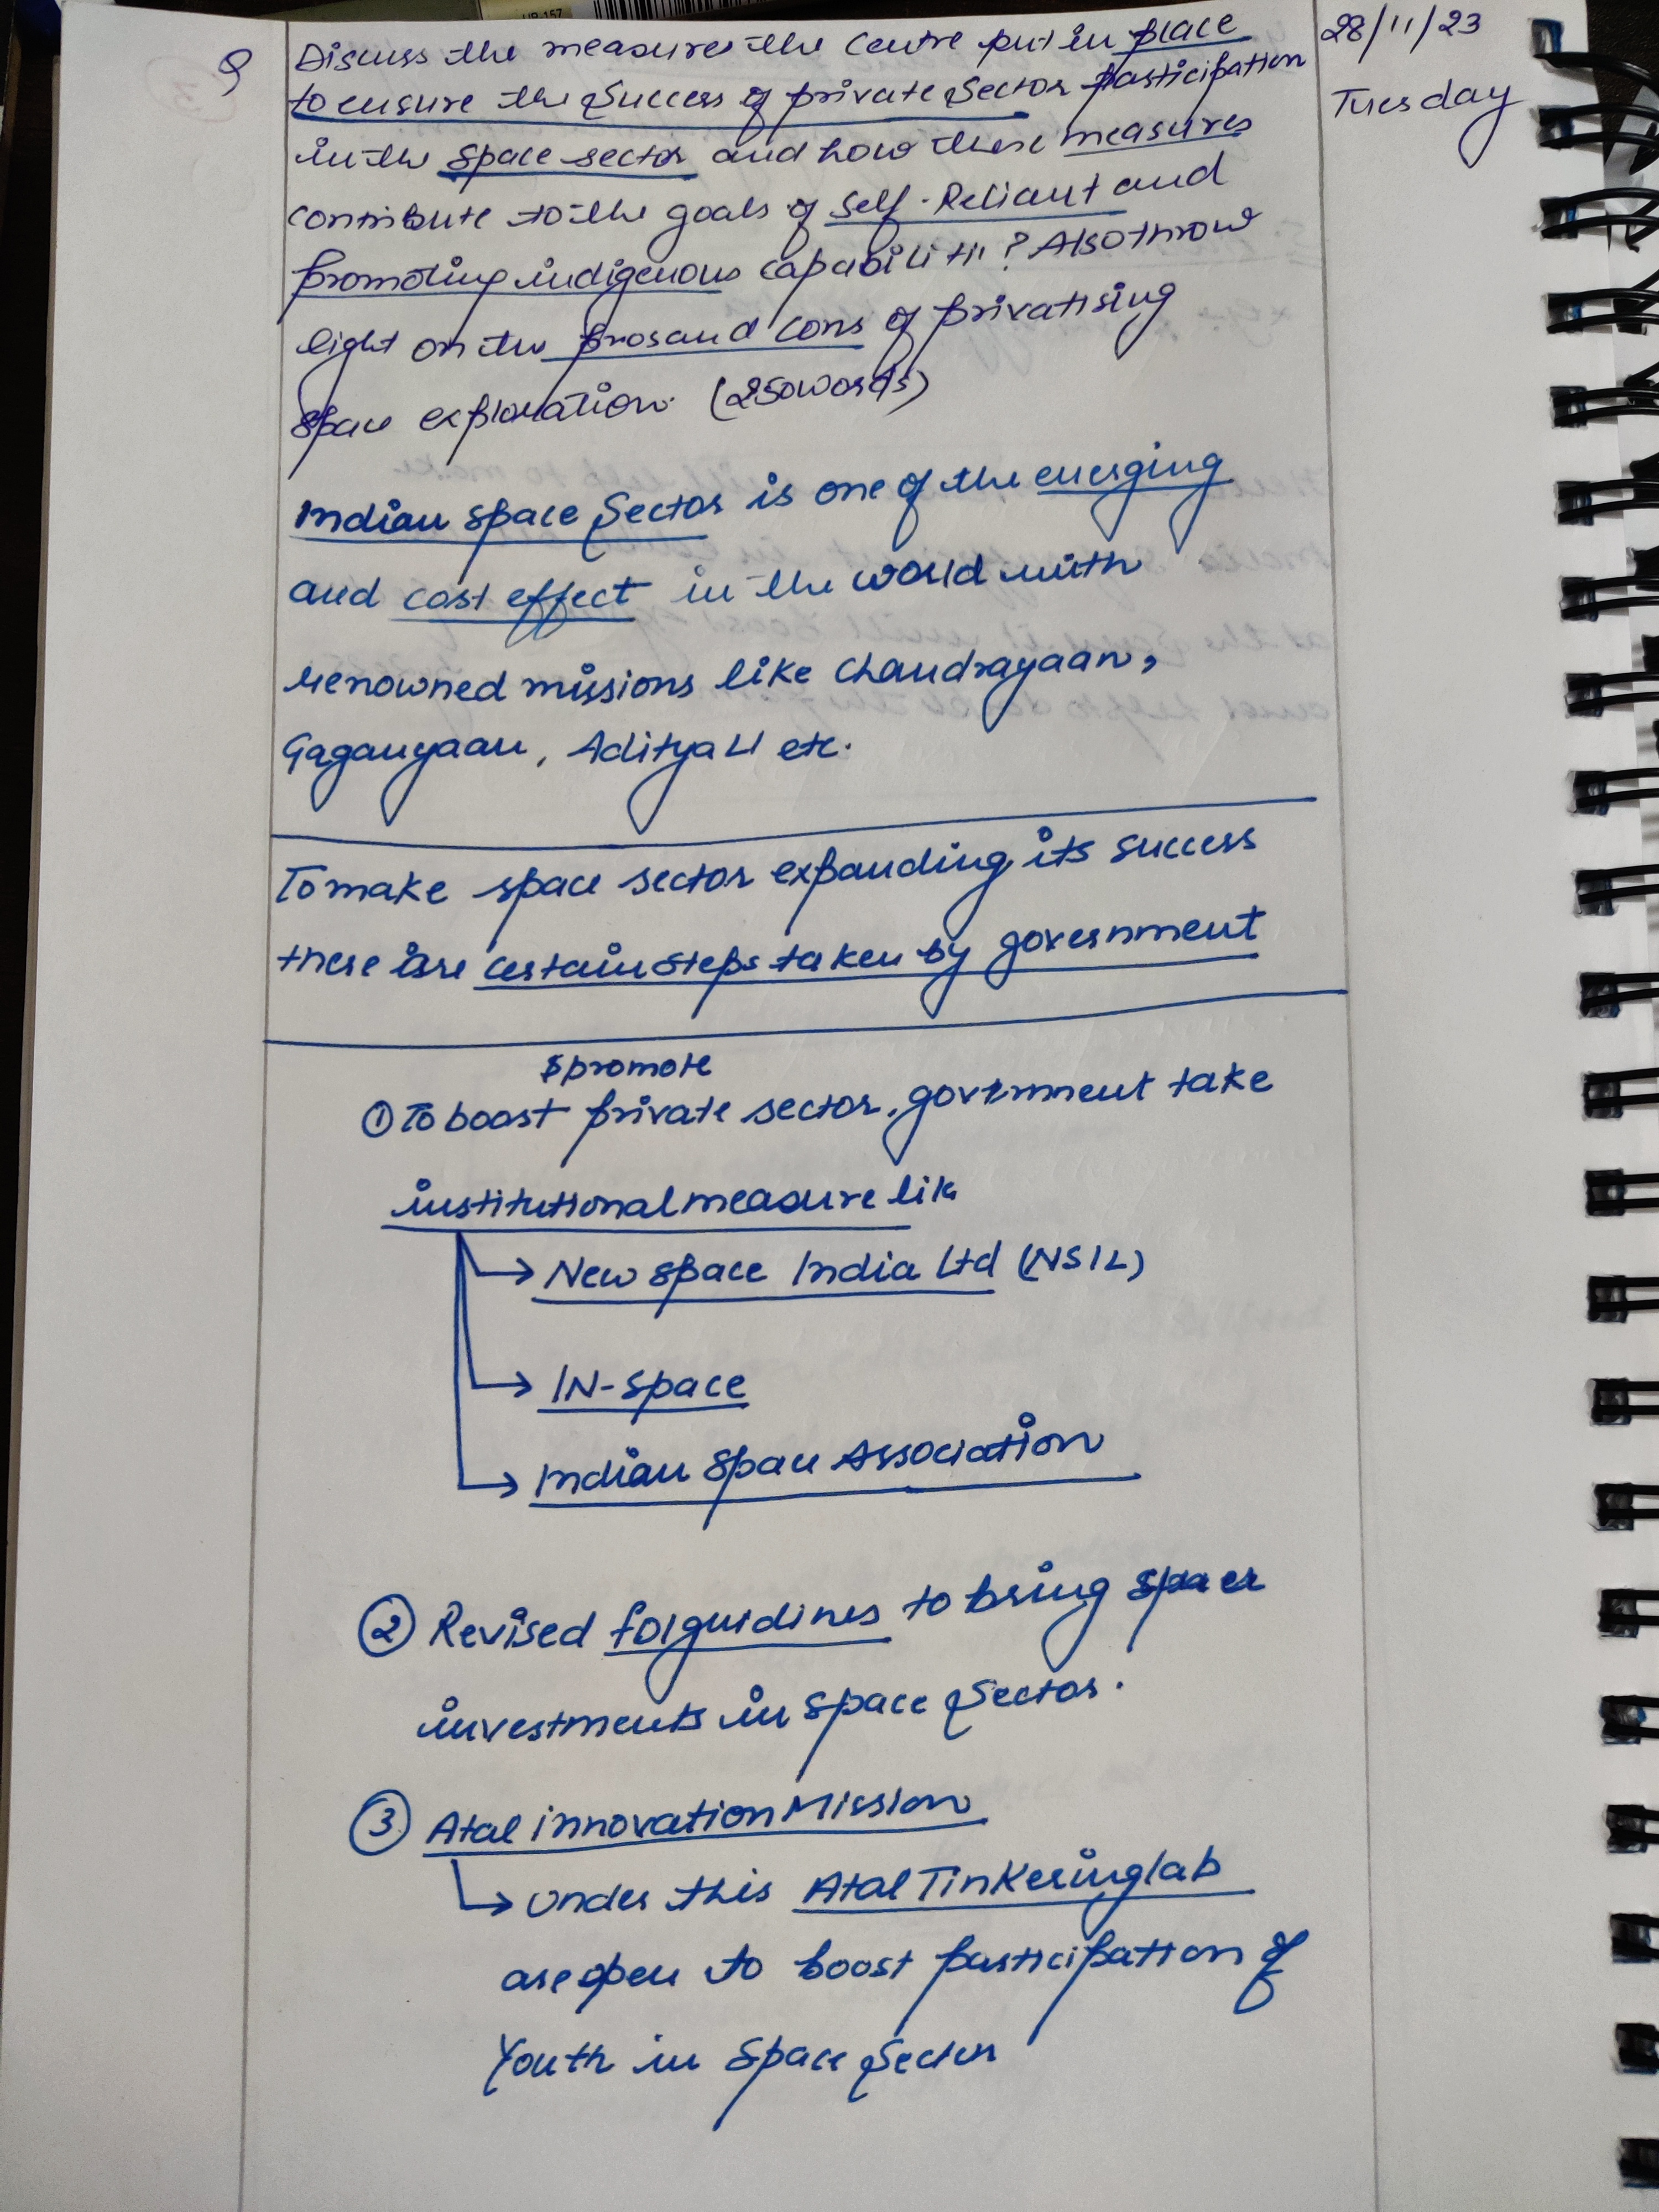 28/11/23
Tuesday
Q Discuss the measures the Centre put in place
to ensure the success of private sector participation
in the space sector and how these measures
contribute to the goals of self-Reliant and
promoting indigenous capabilities? Also throw
light on the pros and cons of privatising
space exploration. (250 words)
Indian space sector is one of the emerging
and cost effect in the world with
renowned missions like Chandrayaan,
Gaganyaan, Aditya L1 etc.
To make space sector expanding its success
there are certain steps taken by government
& promote
① To boost private sector, government take
institutional measure like
→ New space India Ltd (NSIL)
→ IN-space
→ Indian Space Association
② Revised fdi guidines to bring
investments in space sector.
③ Atal innovation Mission
→ under this Atal Tinkering lab
are open to boost participation of
Youth in space sector